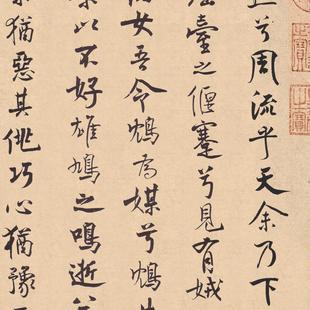 兮周流乎天余乃下
瑤臺之偃蹇兮見有娀
佚女吾令鴆為媒兮鴆
余以不好雄鳩之鳴逝兮
余猶惡其佻巧心猶豫